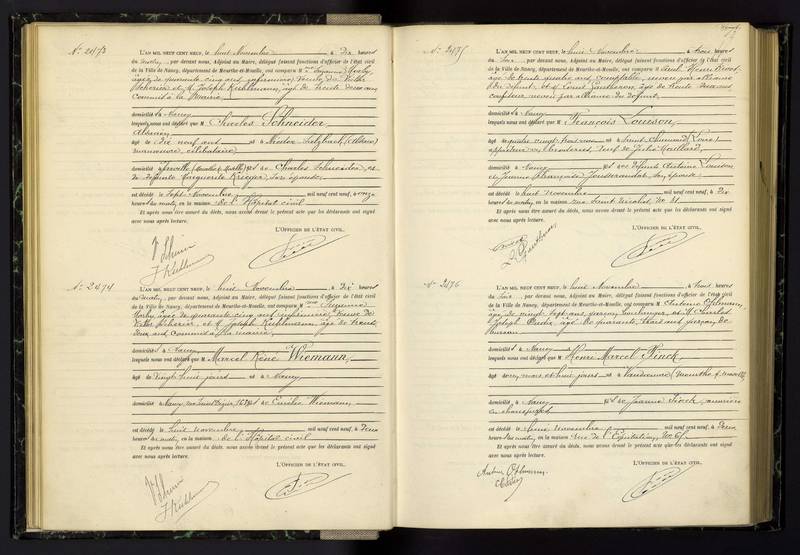 No 2473
L'AN MIL NEUF CENT NEUF, le huit Novembre à dix heures
du matin, par devant nous, Adjoint au Maire, délégué faisant fonctions d'officier de l'état civil
de la Ville de Nancy, département de Meurthe-et-Moselle, ont comparu M Suzanne
âgée de quarante cinq ans infirmière, veuve de Victor
Scherrer et M. Joseph Kuhlmann, âgé de trente deux ans
Commis à la Mairie,
domiciliés à Nancy
lesquels nous ont déclaré que M Charles Schneider,
Alsacien
âgé de dix neuf ans né à (Alsace)
manœuvre, célibataire,
domicilié à fils de Charles Schneider,
de défunte Marguerite Krieger, son épouse
est décédé le sept Novembre mil neuf cent neuf, à onze
heures du matin, en la maison de l'Hôpital civil
Et après nous être assuré du décès, nous avons dressé le présent acte que les déclarants ont signé
avec nous après lecture.
L'OFFICIER DE L'ÉTAT CIVIL,
No 2474
L'AN MIL NEUF CENT NEUF, le huit Novembre à dix heures
du matin, par devant nous, Adjoint au Maire, délégué faisant fonctions d'officier de l'état civil
de la Ville de Nancy, département de Meurthe-et-Moselle, ont comparu M Suzanne
âgée de quarante cinq ans infirmière, veuve de
Victor Scherrer, et M. Joseph Kuhlmann, âgé de trente
deux ans commis à la mairie,
domiciliés à Nancy
lesquels nous ont déclaré que M Marcel René Wiemann,
âgé de vingt huit jours né à Nancy
domicilié à Nancy, rue fils de Emilie Wiemann,
est décédé le huit novembre mil neuf cent neuf, à deux
heures du matin, en la maison de l'Hôpital civil
Et après nous être assuré du décès, nous avons dressé le présent acte que les déclarants ont signé
avec nous après lecture.
L'OFFICIER DE L'ÉTAT CIVIL,
No 2475
L'AN MIL NEUF CENT NEUF, le huit Novembre à trois heures
du soir, par devant nous, Adjoint au Maire, délégué faisant fonctions d'officier de l'état civil
de la Ville de Nancy, département de Meurthe-et-Moselle, ont comparu M Henri
âgé de trente quatre ans, comptable, neveu par alliance
du défunt, et M. Louis âgé de trente deux ans
coiffeur neveu par alliance du défunt,
domiciliés à Nancy
lesquels nous ont déclaré que M François Lourson,
âgé de quatre vingt trois ans né à Saint Chamond (Loire)
veuf de Julie
domicilié à Nancy fils de défunts Antoine Lourson,
et Jeanne Françoise son épouse
est décédé le huit novembre mil neuf cent neuf, à dix
heures du matin, en la maison rue Saint Nicolas, No 21
Et après nous être assuré du décès, nous avons dressé le présent acte que les déclarants ont signé
avec nous après lecture.
L'OFFICIER DE L'ÉTAT CIVIL,
No 2476
L'AN MIL NEUF CENT NEUF, le huit Novembre à trois heures
du soir, par devant nous, Adjoint au Maire, délégué faisant fonctions d'officier de l'état civil
de la Ville de Nancy, département de Meurthe-et-Moselle, ont comparu M Antoine
âgé de vingt sept ans, garçon boulanger, et M Charles
Joseph âgé de quarante trois ans garçon de
bureau
domiciliés à Nancy
lesquels nous ont déclaré que M Henri Marcel Finck,
âgé de mois et huit jours né à Vandœuvre (Meurthe & Moselle),
domicilié à Nancy fils de Jeanne Finck, ouvrière
en
est décédé le huit novembre mil neuf cent neuf, à deux
heures du matin, en la maison rue de l'Équitation, No
Et après nous être assuré du décès, nous avons dressé le présent acte que les déclarants ont signé
avec nous après lecture.
L'OFFICIER DE L'ÉTAT CIVIL,